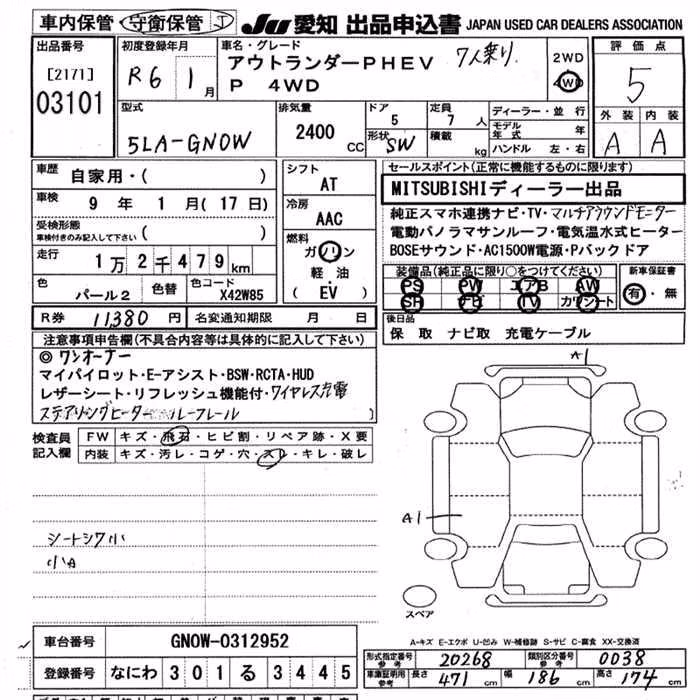 車内保管 守衛保管 J JU 愛知 出品申込書 JAPAN USED CAR DEALERS ASSOCIATION
出品番号 [2171] 03101
初度登録年月 R6 1月
車名・グレード アウトランダーPHEV 7人乗り
P 4WD
2WD 4WD
評価点 5
外装 内装
A A
型式 5LA-GN0W
排気量 2400 CC
ドア 5
形状 SW
定員 7人
積載 kg
ディーラー・並行
モデル年式 年
ハンドル 左・右
車歴 自家用・( )
車検 9年 1月(17日)
受検形態 車検付きのみ記入して下さい ( )
走行 1万2千479km
色 パール2 色替 色コード X42W85
シフト AT
冷房 AAC
燃料 ガソリン 軽油 (EV)
セールスポイント(正常に機能するものに限ります)
MITSUBISHIディーラー出品
純正スマホ連携ナビ・TV・マルチアラウンドモニター
電動パノラマサンルーフ・電気温水式ヒーター
BOSEサウンド・AC1500W電源・Pバックドア
装備品(純正品に限り○をつけてください)
PS PW エアB AW
SR ナビ TV カワシート
新車保証書 有・無
R券 11380円 名変通知期限 月 日
後日品
保 取 ナビ取 充電ケーブル
注意事項申告欄(不具合内容等は具体的に記入して下さい)
◎ワンオーナー
マイパイロット・E-アシスト・BSW・RCTA・HUD
レザーシート・リフレッシュ機能付・ワイヤレス充電
ステアリングヒーター ルーフレール
検査員記入欄
FW キズ・飛石・ヒビ割・リペア跡・X要
内装 キズ・汚レ・コゲ・穴・スレ・キレ・破レ
シートシワ小
小A
A1
A1
スペア
A-キズ E-エクボ U-凹み W-補修跡 S-サビ C-腐食 XX-交換済
車台番号 GN0W-0312952
登録番号 なにわ 301 る 3445
形式指定番号 参考 20268 類別区分番号 参考 0038
車庫証明用 参考 長さ 471 幅 186 高さ 174